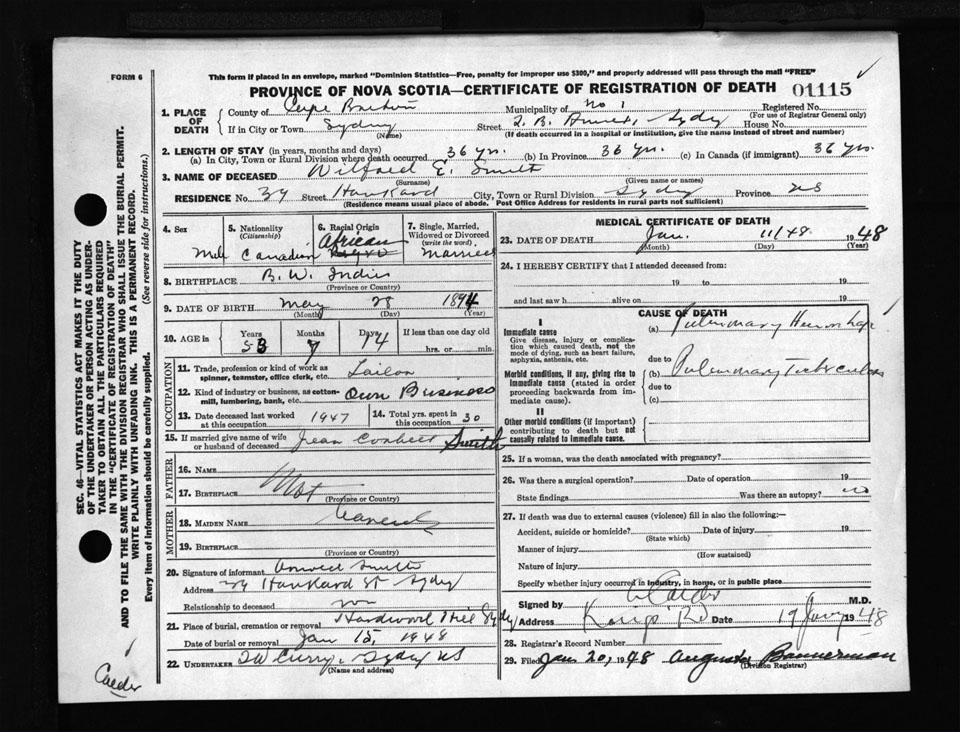 FORM 6
This form if placed in an envelope, marked "Dominion Statistics—Free, penalty for improper use $300," and properly addressed will pass through the mail "FREE"
PROVINCE OF NOVA SCOTIA—CERTIFICATE OF REGISTRATION OF DEATH 01115
1. PLACE OF DEATH
County of Cape Breton Municipality of No 1 Registered No.
(For use of Registrar General only)
If in City or Town Sydney Street Sydney House No.
(Name) (If death occurred in a hospital or institution, give the name instead of street and number)
2. LENGTH OF STAY (in years, months and days)
(a) In City, Town or Rural Division where death occurred 36 yrs. (b) In Province 36 yrs. (c) In Canada (if immigrant) 36 yrs.
3. NAME OF DECEASED Wilfred E. Smith
(Surname) (Given name or names)
RESIDENCE No. 34 Street Hankard City, Town or Rural Division Sydney Province NS
(Residence means usual place of abode. Post Office Address for residents in rural parts not sufficient)
4. Sex
5. Nationality (Citizenship)
6. Racial Origin
7. Single, Married, Widowed or Divorced (write the word)
Male Canadian African Married
8. BIRTHPLACE B. W. Indies
(Province or Country)
9. DATE OF BIRTH May 28 1894
(Month) (Day) (Year)
10. AGE in Years Months Days If less than one day old
53 7 14 hrs. or min.
OCCUPATION
11. Trade, profession or kind of work as spinner, teamster, office clerk, etc. Tailor
12. Kind of industry or business, as cotton-mill, lumbering, bank, etc. Own Business
13. Date deceased last worked at this occupation 1947
14. Total yrs. spent in this occupation 30
15. If married give name of wife or husband of deceased Jean Corbett Smith
FATHER
16. NAME
17. BIRTHPLACE Not
(Province or Country)
MOTHER
18. MAIDEN NAME
19. BIRTHPLACE
(Province or Country)
20. Signature of informant Smith
Address 34 Hankard St Sydney
Relationship to deceased son
21. Place of burial, cremation or removal Hardwood Hill Sydney
Date of burial or removal Jan 15, 1948
22. UNDERTAKER Curry, Sydney NS
(Name and address)
MEDICAL CERTIFICATE OF DEATH
23. DATE OF DEATH Jan. 11/48 1948
(Month) (Day) (Year)
24. I HEREBY CERTIFY that I attended deceased from:
19 to 19
and last saw h alive on 19
CAUSE OF DEATH
I
Immediate cause
Give disease, injury or complication which caused death, not the mode of dying, such as heart failure, asphyxia, asthenia, etc.
(a) Pulmonary Hemorrhage
due to
Morbid conditions, if any, giving rise to immediate cause (stated in order proceeding backwards from immediate cause).
(b) Pulmonary Tuberculosis
due to
(c)
II
Other morbid conditions (if important) contributing to death but not causally related to immediate cause.
25. If a woman, was the death associated with pregnancy?
26. Was there a surgical operation? Date of operation 19
State findings Was there an autopsy? no
27. If death was due to external causes (violence) fill in also the following:—
Accident, suicide or homicide? Date of injury 19
(State which)
Manner of injury
(How sustained)
Nature of injury
Specify whether injury occurred in industry, in home, or in public place
Signed by Calder M.D.
Address King's Rd Date 19 Jany 1948
28. Registrar's Record Number
29. Filed Jan. 20, 1948 Augusta Bannerman
(Division Registrar)
SEC. 46—VITAL STATISTICS ACT MAKES IT THE DUTY
OF THE UNDERTAKER OR PERSON ACTING AS UNDER-
TAKER TO OBTAIN ALL THE PARTICULARS REQUIRED
IN THE "CERTIFICATE OF REGISTRATION OF DEATH"
AND TO FILE THE SAME WITH THE DIVISION REGISTRAR WHO SHALL ISSUE THE BURIAL PERMIT.
WRITE PLAINLY WITH UNFADING INK. THIS IS A PERMANENT RECORD.
Every item of information should be carefully supplied. (See reverse side for instructions.)
Calder